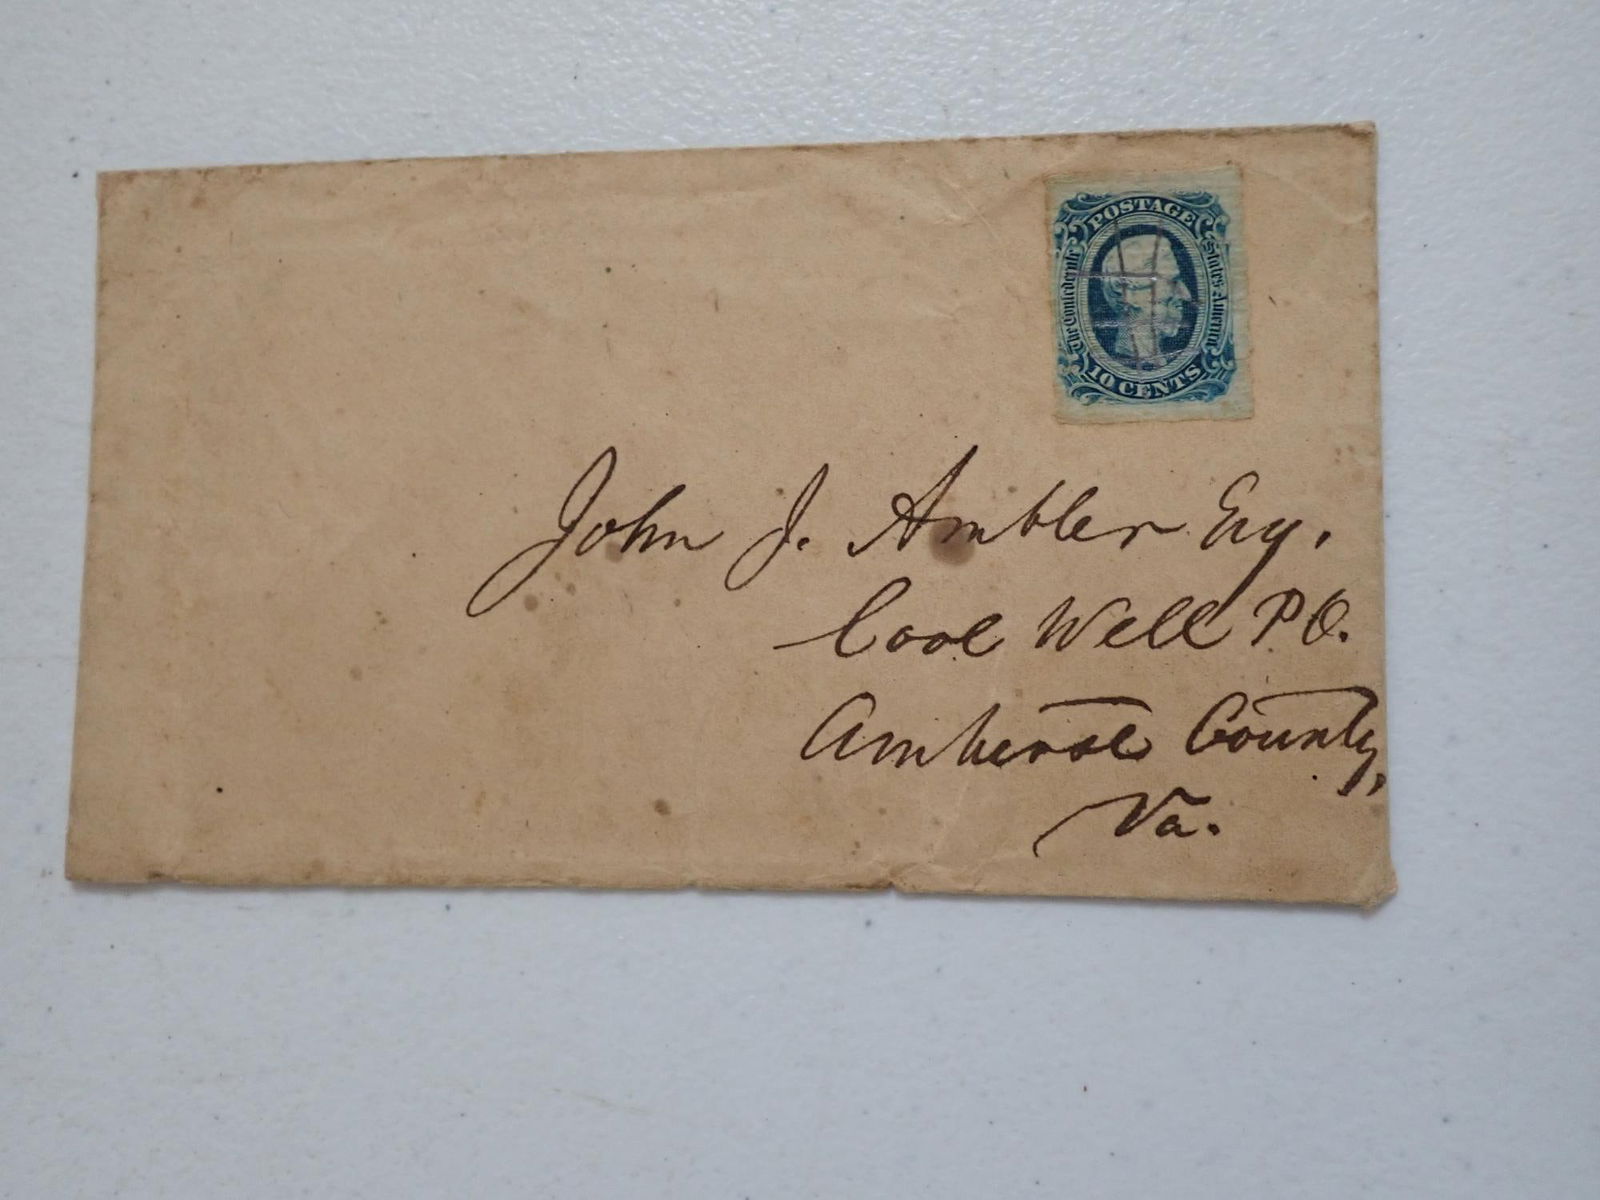 POSTAGE
The Confederate States America
10 CENTS
John J. Ambler Esq.
Cool Well P.O.
Amherst County,
Va.